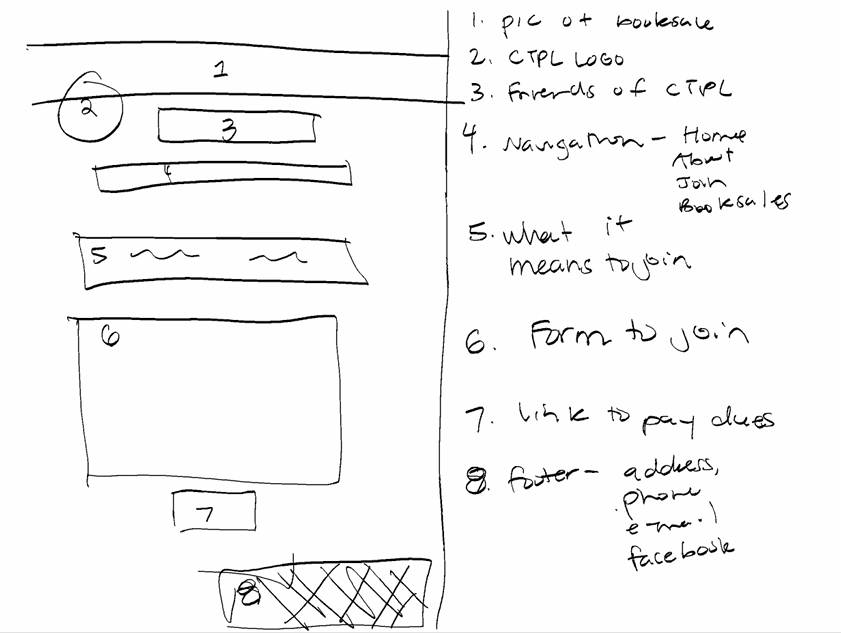 1
2
3
4
5
6
7
8
1. pic of booksale
2. CTPL LOGO
3. Friends of CTPL
4. Navigation - Home
About
Join
Booksales
5. what it
means to join
6. Form to join
7. link to pay dues
8. footer - address,
phone
e-mail
facebook